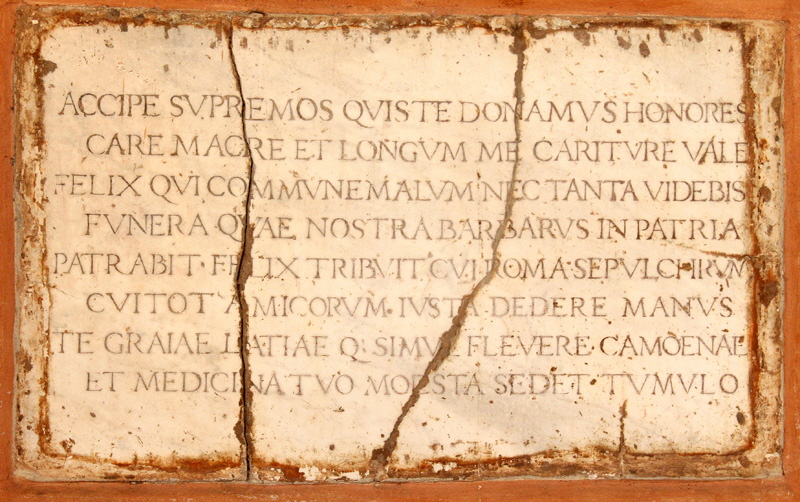 ACCIPE SVPREMOS QVIS TE DONAMVS HONORES
CARE MACRE ET LONGVM ME CARITVRE VALE
FELIX QVI COMMVNE MALVM NEC TANTA VIDEBIS
FVNERA QVAE NOSTRA BARBARVS IN PATRIA
PATRABIT · FELIX TRIBVIT CVI ROMA · SEPVLCHRVM
CVI TOT AMICORVM · IVSTA DEDERE MANVS
TE GRAIAE LATIAE Q: SIMVL FLEVERE · CAMOENAE
ET MEDICINA TVO MOESTA SEDET TVMVLO